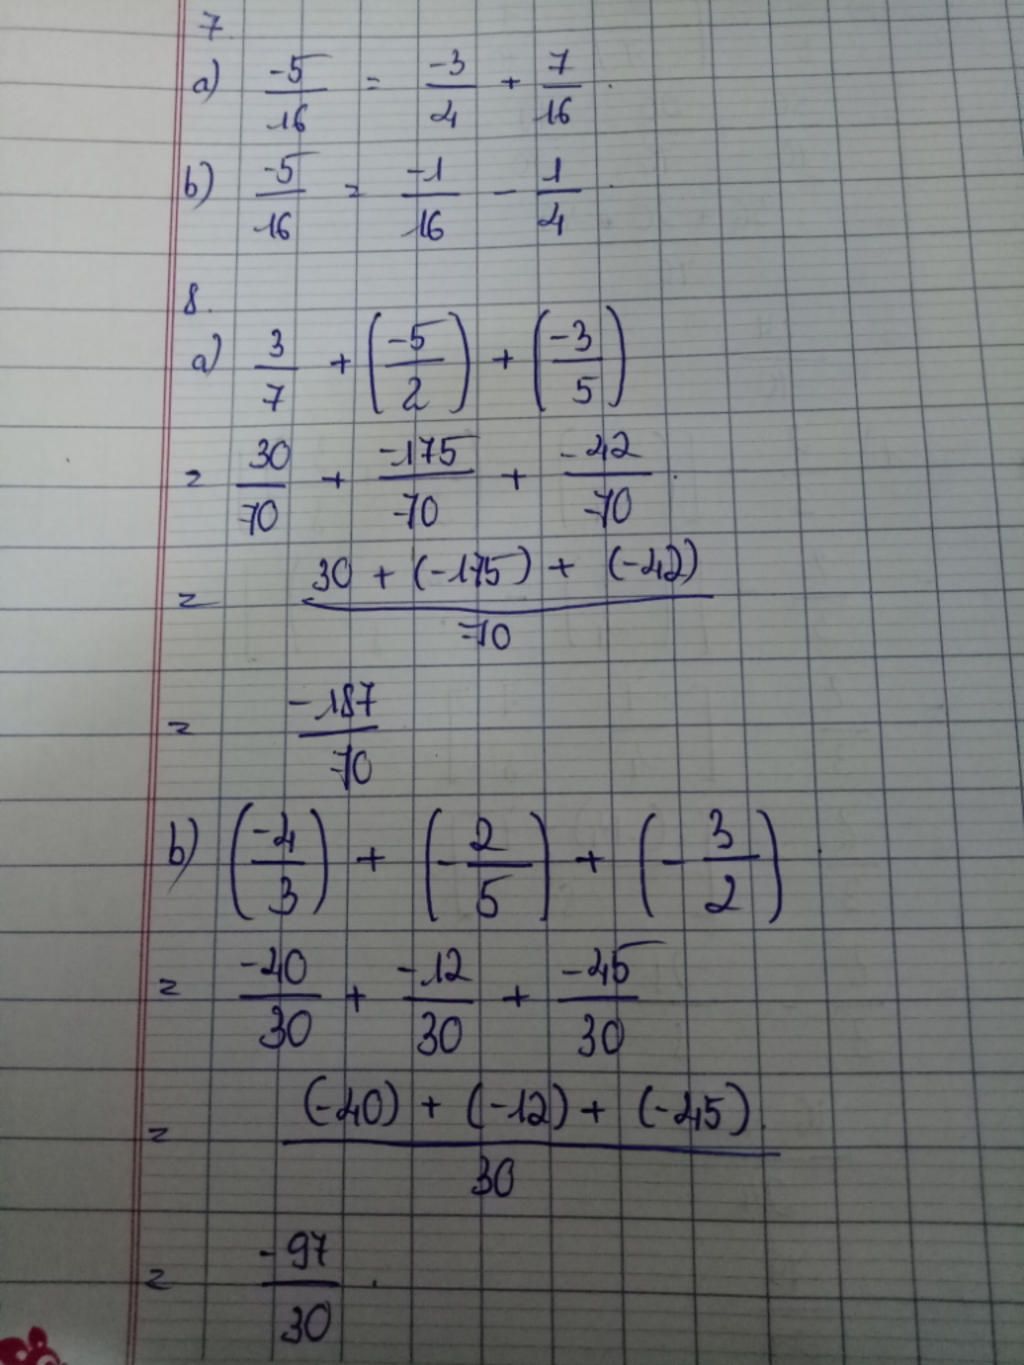 7.
a) -5/16 = -3/4 + 7/16.
b) -5/16 = -1/16 - 1/4.
8.
a) 3/7 + (-5/2) + (-3/5)
= 30/70 + -175/70 + -42/70.
= 30 + (-175) + (-42)/70
= -187/70
b) (-4/3) + (-2/5) + (-3/2).
= -40/30 + -12/30 + -45/30
= (-40) + (-12) + (-45)/30
= -97/30.